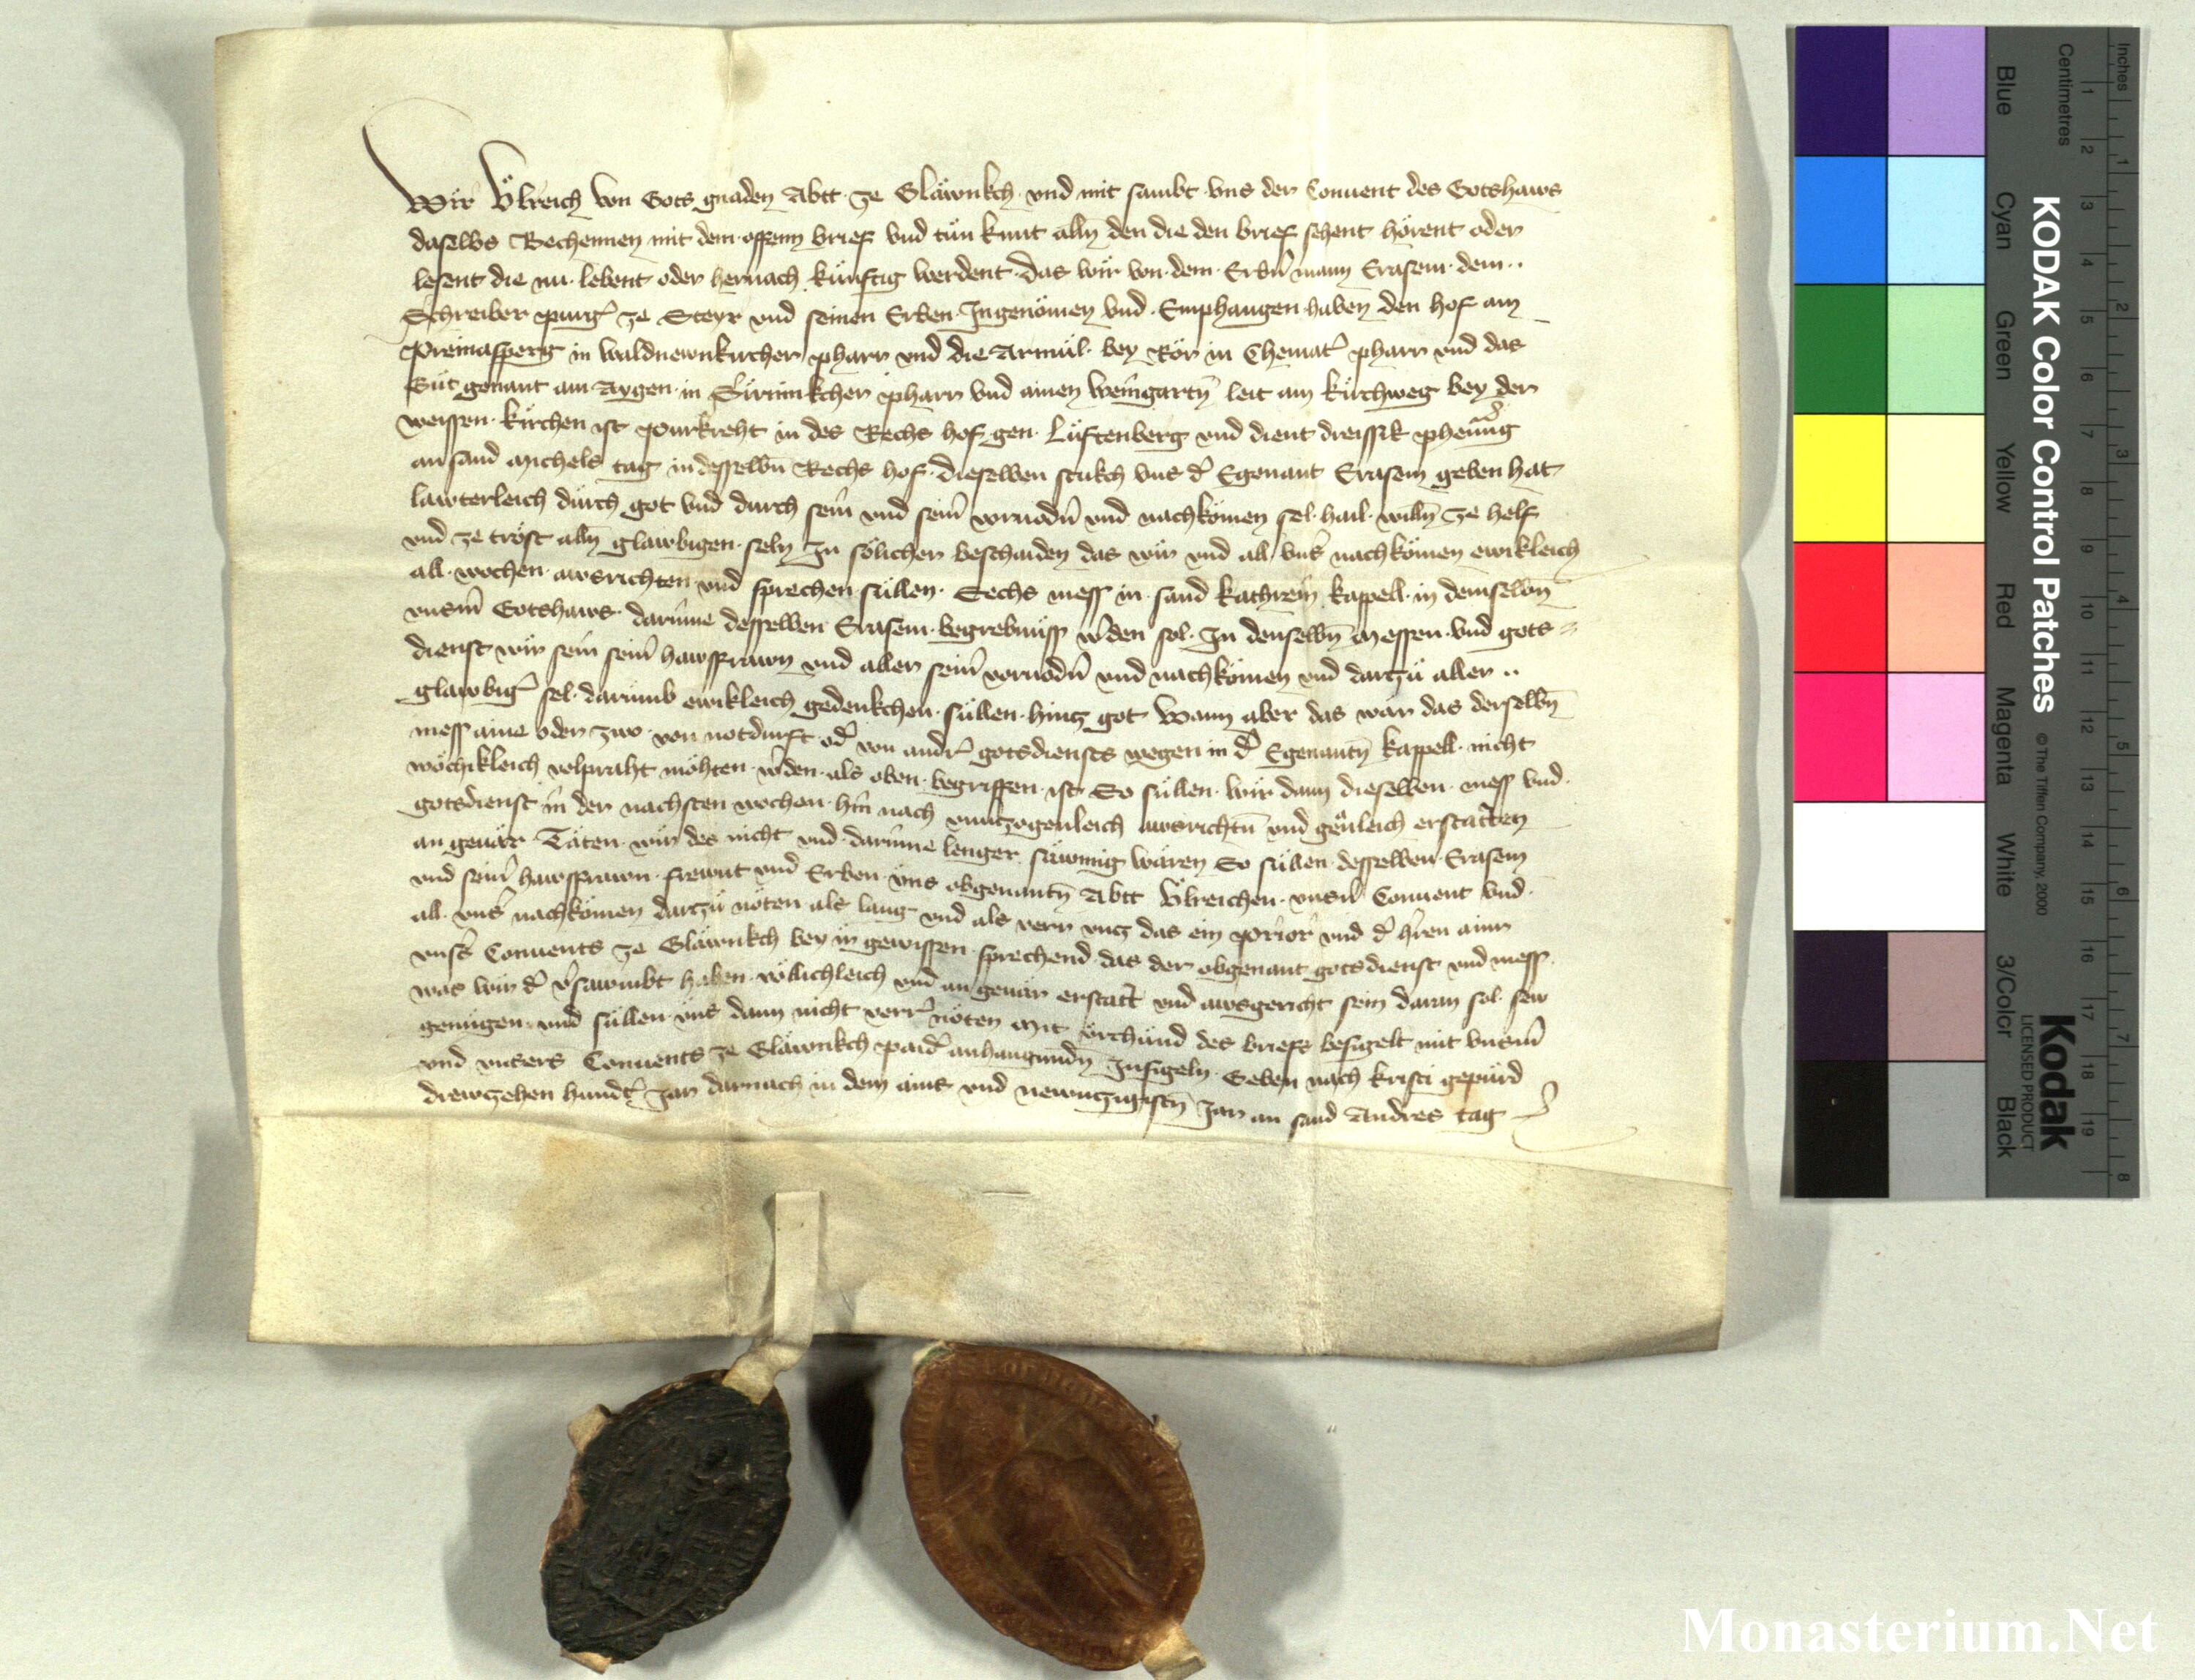 Wir Ulreich von Gots gnaden Abtt ze Gläwnkch und mit sambt uns der Convent des Gotshaws
daselbs Bechennen mit dem offenn brief und tün kunt alln den die den brief sehent hörent oder
lesent die nu lebent oder hernach künftig werdent das wir von dem Erbn mann Erasem dem
Schreiber purg ze Steyr und seinen Erben Ingenömen und Emphangen haben den hof am
Preimasperg in Waldnewnkircher pharr und die Armül bey Rör in Chemat pharr und das
Güt genant am Aygen in Sirnikcher pharr und ainen weingartn leit am kirchweg bey der
weissen kirchen ist purkreht in des Rechs hof gen Lüftenberg und dient dreissik phening
an sand Michels tag in desselbn Rechs hof dieselben stukch uns d Egenant Erasem geben hat
lawterleich durch got und durch sein und seinr vorvodn und nachkömen sel hail willn ze helf
und ze tröst alln glawbigen seln In sölicher beschaiden das wir und all uns nachkömen ewikleich
all wochen awsrichten und sprechen süllen Sechs mess in sand kathrein kappell in demselbn
unsm Gotshaws darinne desselben Erasem begrebnüss wden sol In denselbn messen und gots
dienst wir sein seinr hawsfrawn und aller seinr vorvodn und nachkömen und dartzü aller
glawbig sel darumb ewikleich gedenkchen süllen hintz got Wann aber das wär das derselbn
mess aine oder zwo von notdurft od von andr gotsdiensts wegen in d Egenantn kappell nicht
wöchikleich volpraht möhten wden als oben begriffen ist So süllen wir dann dieselben mess und
gotsdienst in der nachsten wochen hin nach unuertzogenleich awsrichtn und genleich erstatten
an gevär Täten wir des nicht und darinne lenger säwmig wären So süllen desselben Erasem
und seinr hawsfrawn frewnt und Erben uns obgenantn Abtt Ulreichen unsn Convent und
all uns nachkömen dartzü nöten als lang und als verr untz das ein prior und d hren ainr
unss Convents ze Gläwnkch bey ir gewissen sprechend das der obgenant gotsdienst und mess
was wir d vsawmbt haben völlichleich und an gevär erstatt und awsgericht sein daran sol sew
genügen und süllen uns dann nicht verr nöten Mit urchünd des briefs besigelt mit unsm
und unsers Convents ze Gläwnkch paid anhangundn Insigeln Geben nach kristi gepürd
drewzehen hundt Jar darnach in dem ains und newntzigistn Jar an sand Andres tag
KODAK Color Control Patches © The Tiffen Company, 2000
Kodak
LICENSED PRODUCT
Blue Cyan Green Yellow Red Magenta White 3/Color Black
Centimetres 1 2 3 4 5 6 7 8 9 10 11 12 13 14 15 16 17 18 19
Inches 1 2 3 4 5 6 7 8
Monasterium.Net